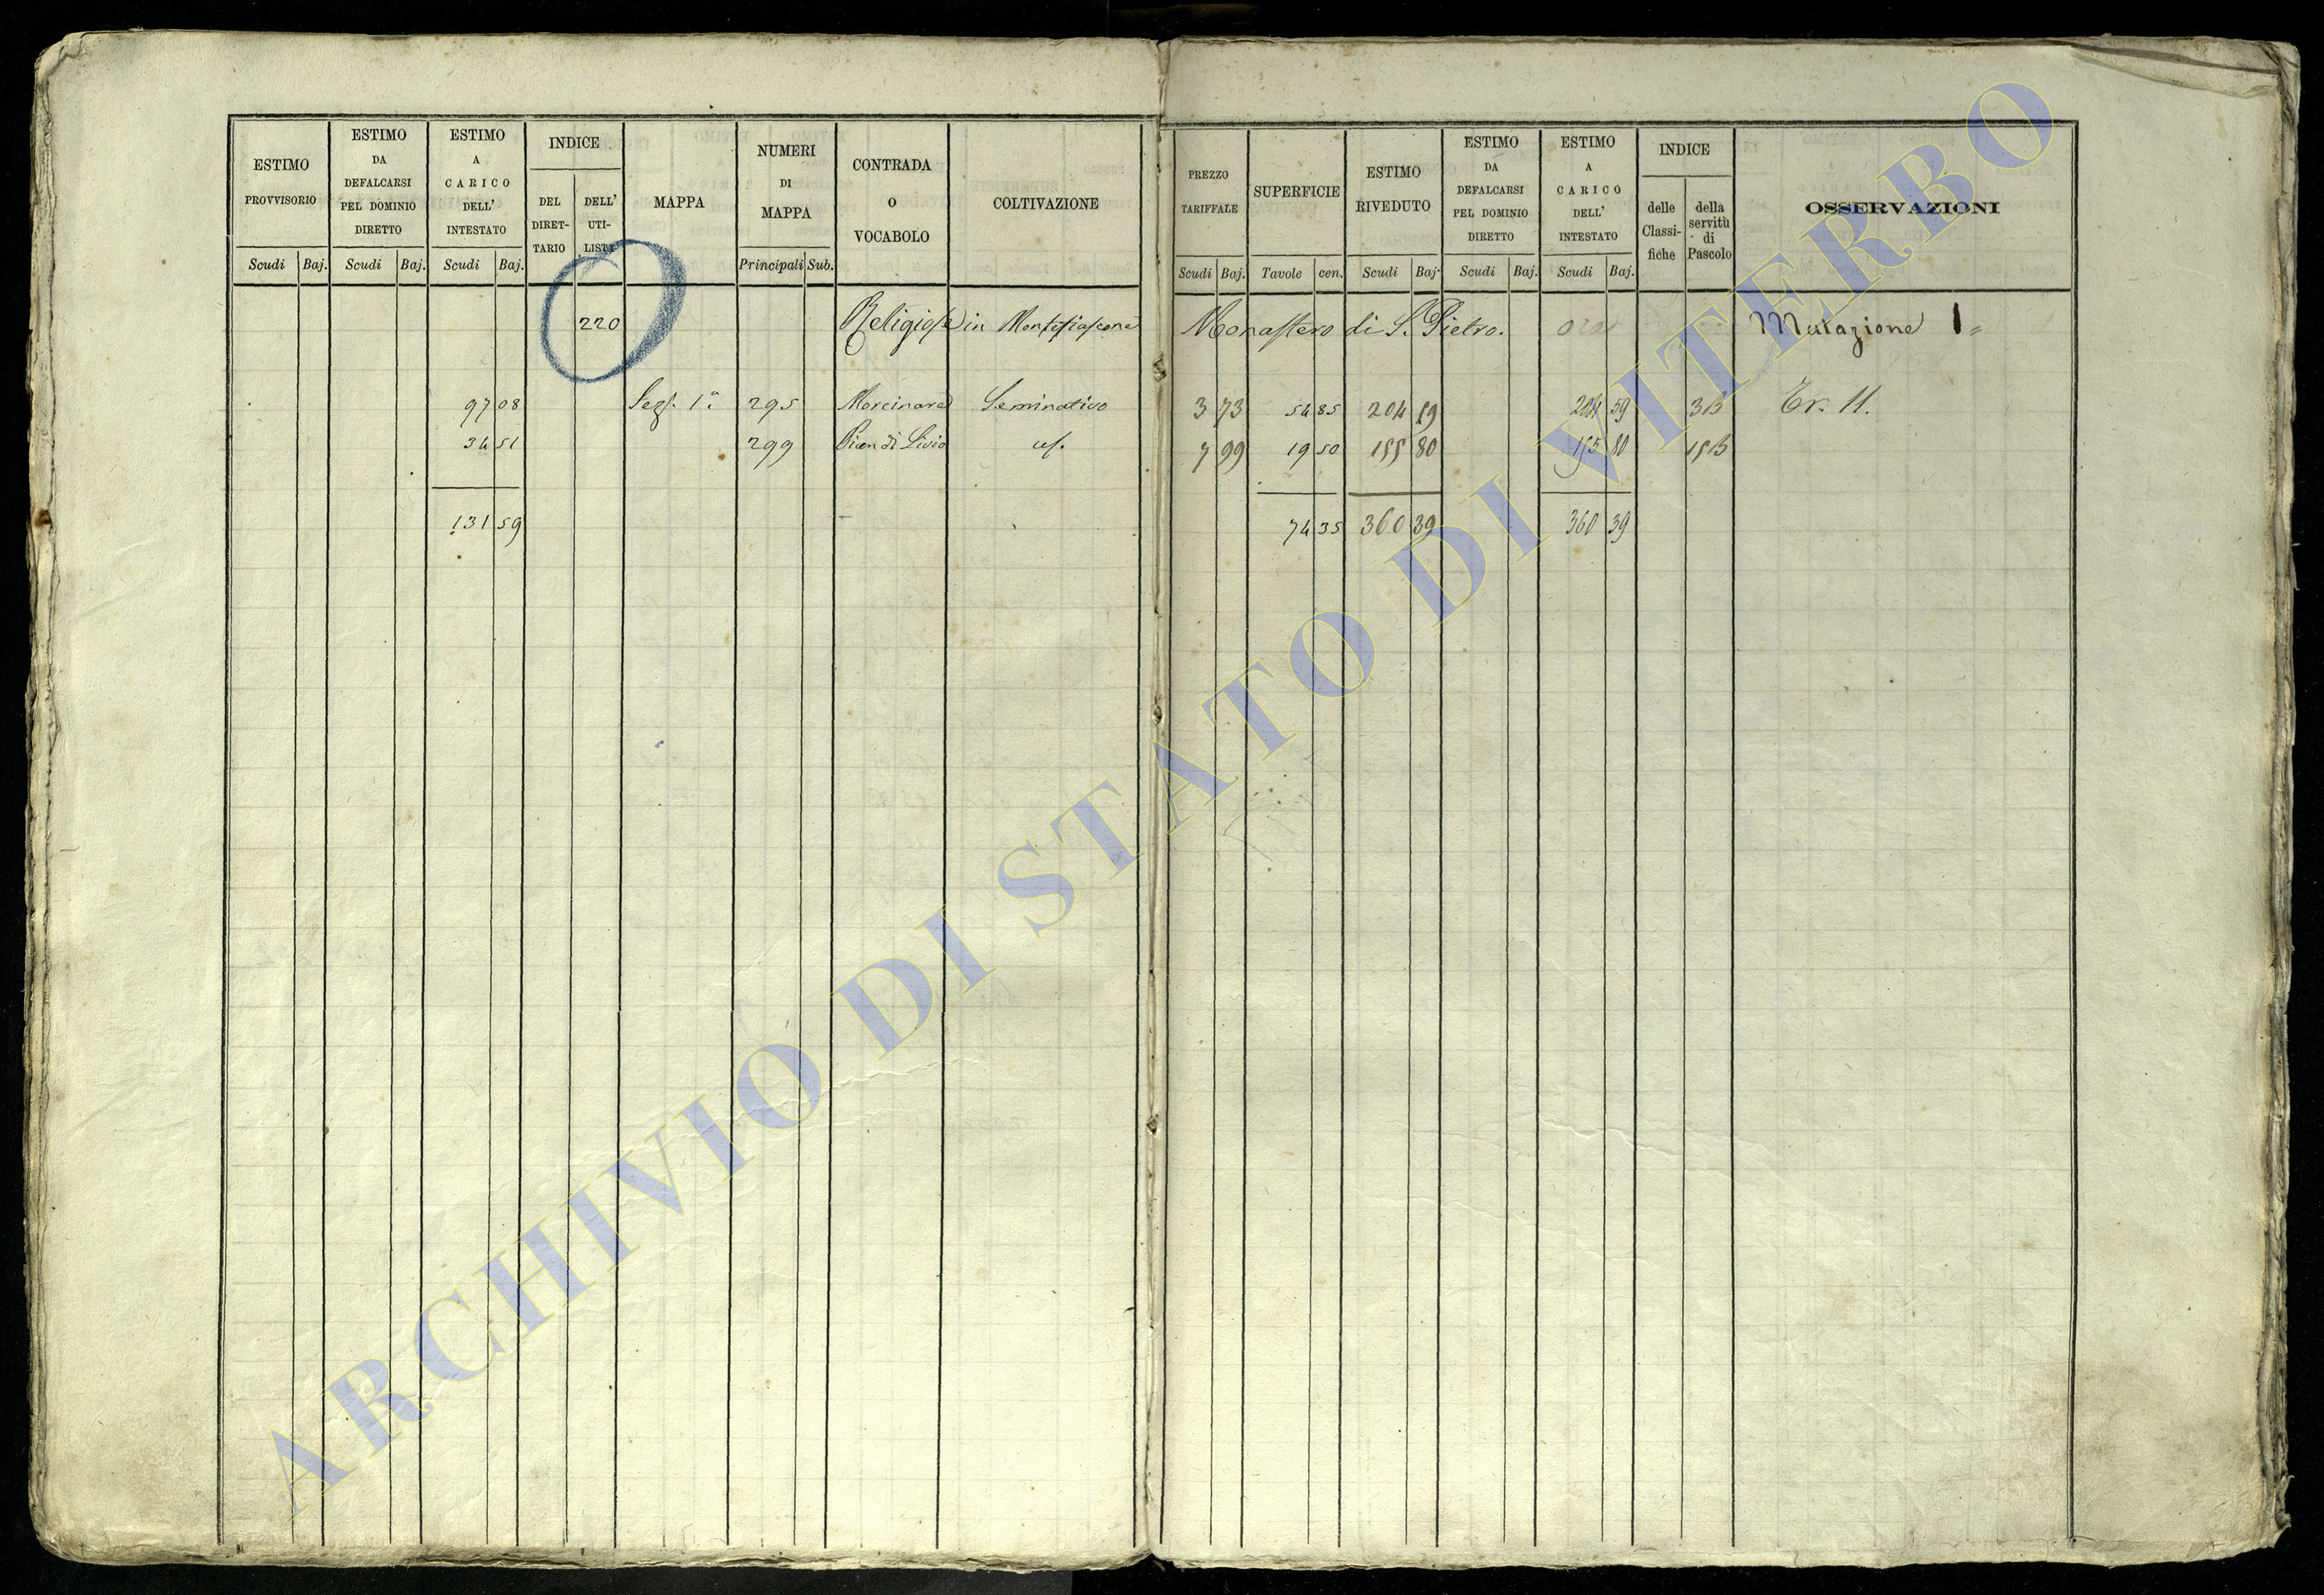 ESTIMO PROVVISORIO
Scudi Baj.
ESTIMO DA DEFALCARSI PEL DOMINIO DIRETTO
Scudi Baj.
ESTIMO A CARICO DELL' INTESTATO
Scudi Baj.
INDICE
DEL DIRET-TARIO
DELL' UTI-LISTA
MAPPA
NUMERI DI MAPPA
Principali Sub.
CONTRADA O VOCABOLO
COLTIVAZIONE
PREZZO TARIFFALE
Scudi Baj.
SUPERFICIE
Tavole cen.
ESTIMO RIVEDUTO
Scudi Baj.
ESTIMO DA DEFALCARSI PEL DOMINIO DIRETTO
Scudi Baj.
ESTIMO A CARICO DELL' INTESTATO
Scudi Baj.
INDICE
delle Classi-fiche
della servitù di Pascolo
OSSERVAZIONI
220 Religiose in Montefiascone Monastero di S. Pietro. Mutazione 1
97 08 Sez. 1a 295 Seminativo 3 73 54 85 204 59 204 59 3B
34 51 299 Pian di Livio 7 99 19 50 155 80 155 80 15B
131 59 74 35 360 39 360 39
ARCHIVIO DI STATO DI VITERBO